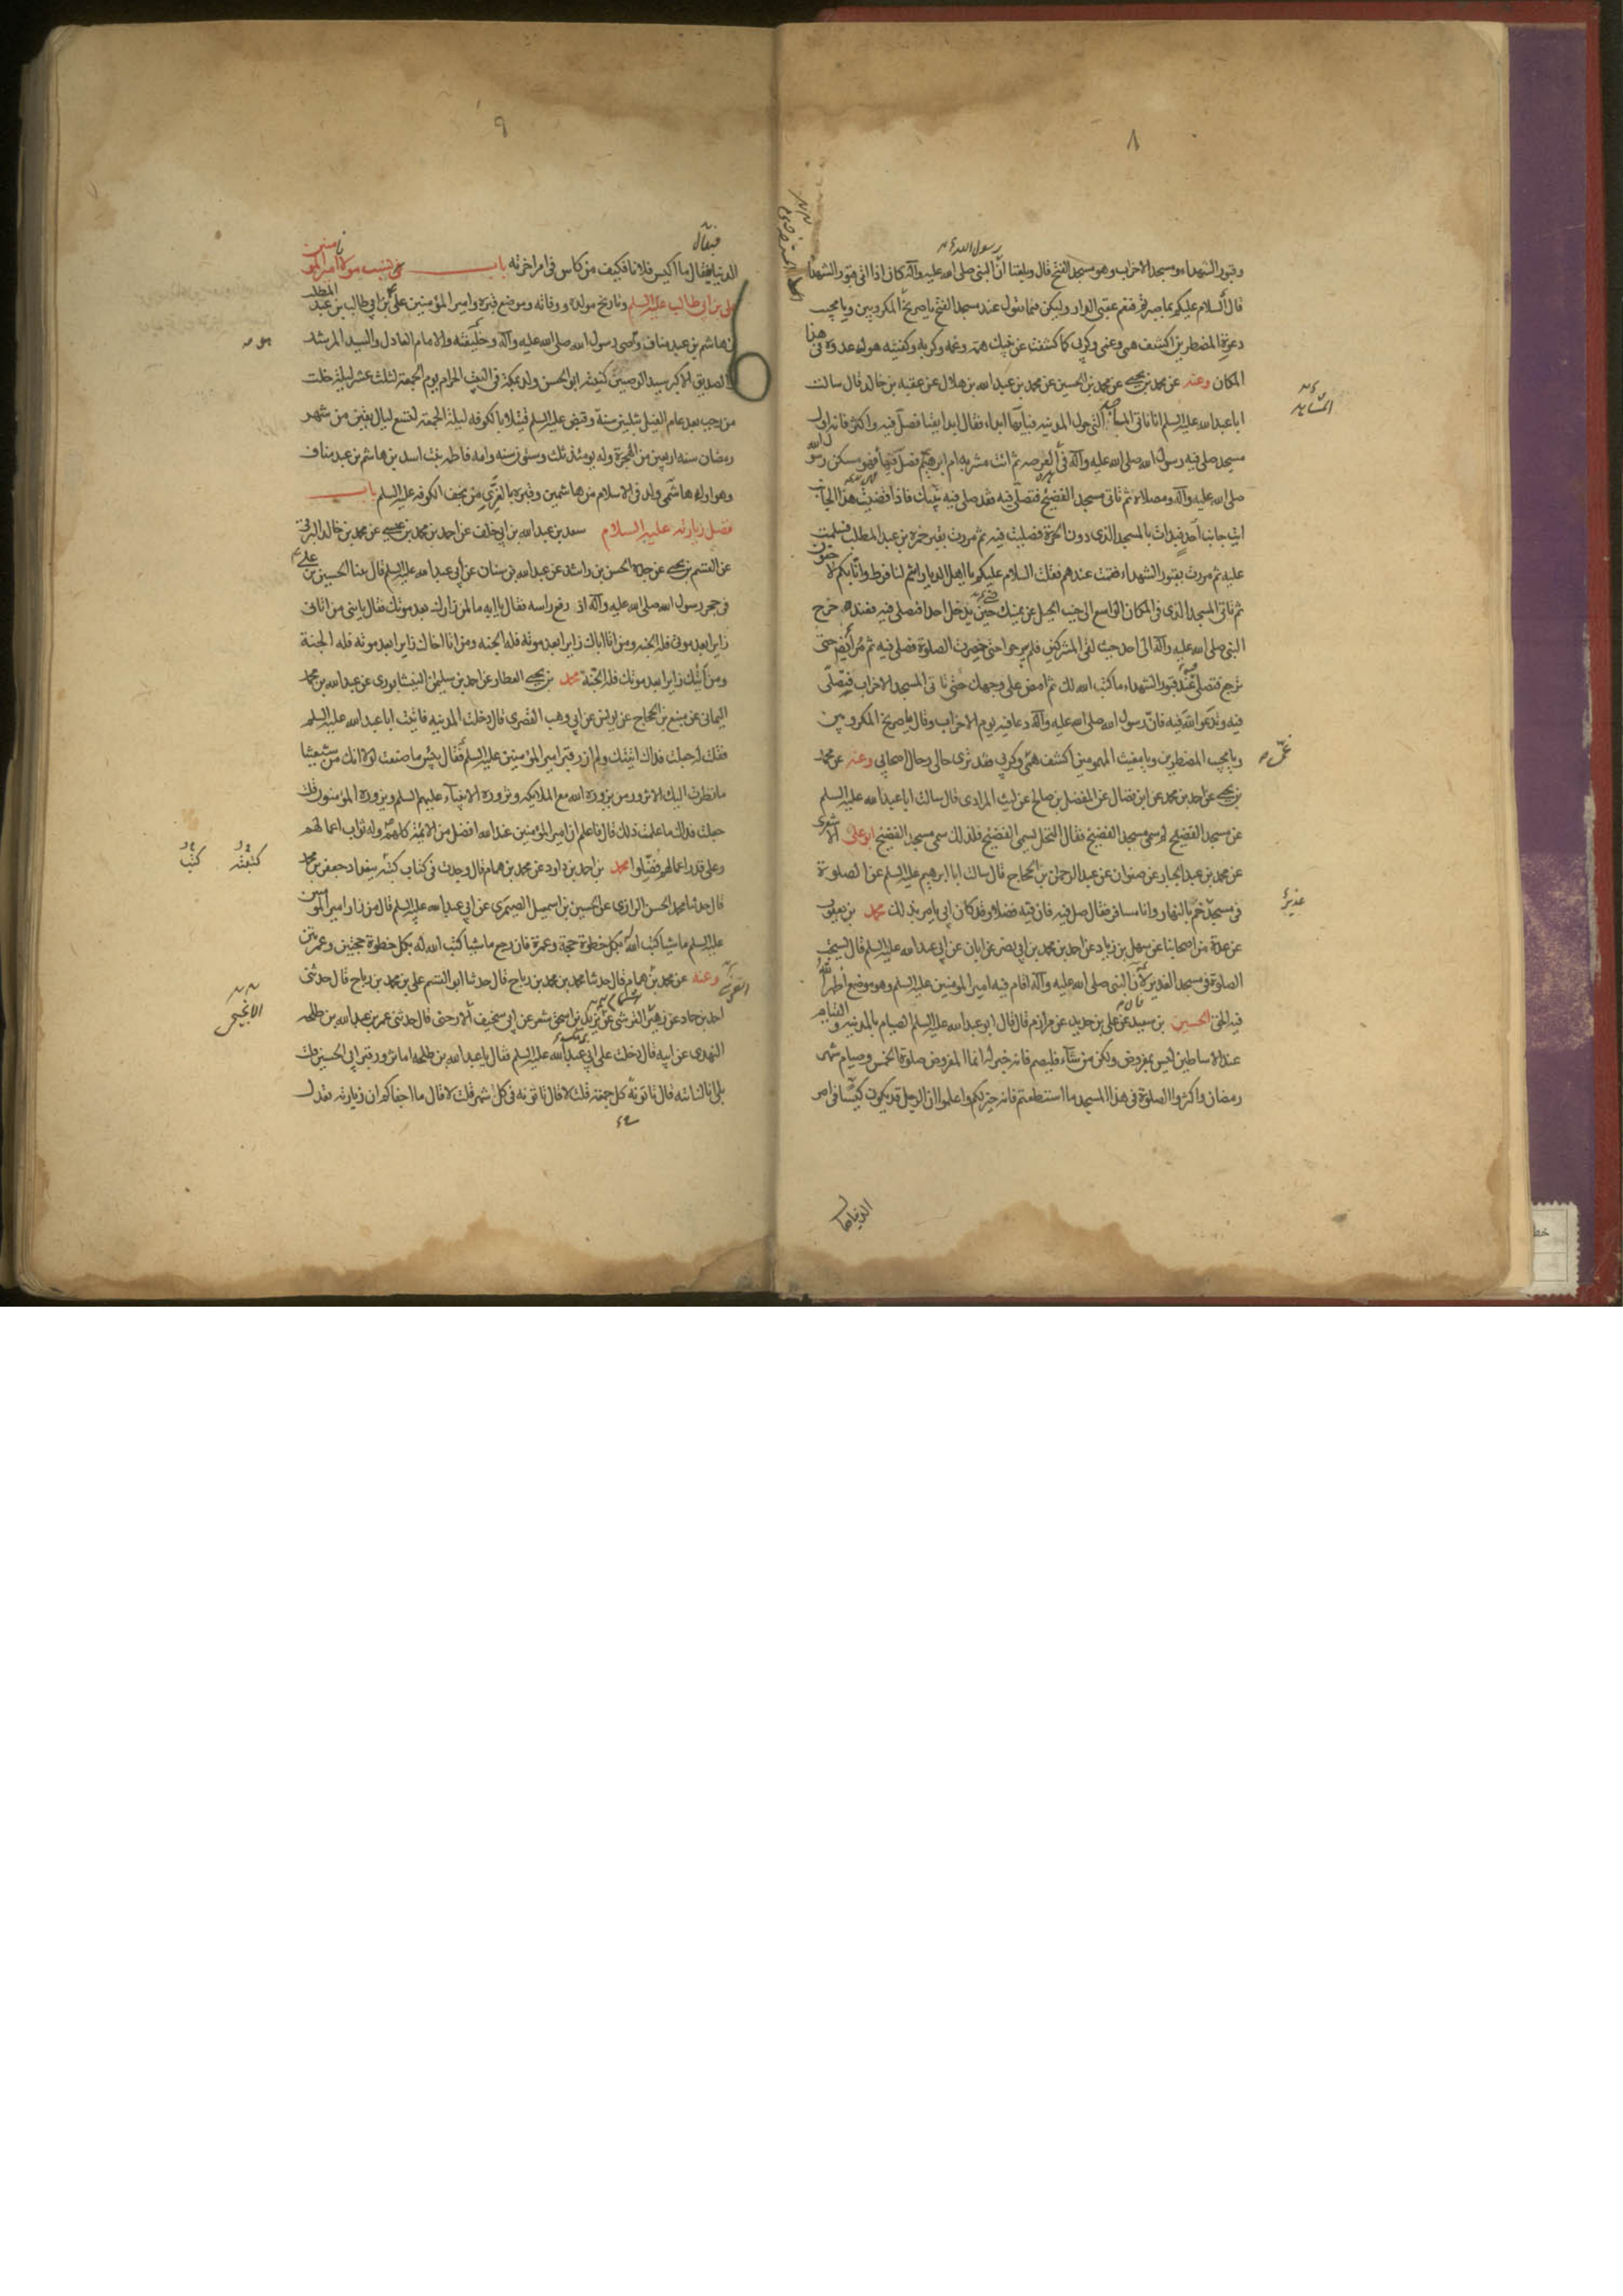 ٨
رسول الله
وقبور الشهداء ومسجد الاحزاب وهو مسجد الفتح قال وبلغنا ان النبى صلى الله عليه وآله كان اذا اتى قبور الشهدا
قال السلام عليكم بما صبرتم فنعم عقبى الدار وليكن فيما تقول عند مسجد الفتح يا صريخ المكروبين ويا مجيب
دعوة المضطرين اكشف همى وغمى وكربى كما كشفت عن نبيك همه وغمه وكربه وكفيته هول عدوه فى هذا
المكان وعنه عن محمد بن يحيى عن محمد بن الحسين عن محمد بن عبد الله بن هلال عن عقبه بن خالد قال سالت
ابا عبد الله عليه السلم انا ناتى المساجد التى حول المدينه فبايها ابداء فقال ابدا بقبا فصل فيه واكثر فانه اول
مسجد صلى فيه رسول الله صلى الله عليه وآله فى العرصه ثم ائت مشربه ام ابرهيم فصل فيها فهو مسكن رسول الله
صلى الله عليه وآله ومصلاه ثم تاتى مسجد الفضيخ فتصلى فيه فقد صلى فيه نبيك فاذا قضيت هذا الجانب
اتيت جانب احد فبدات بالمسجد الذى دون الحرة فصليت فيه ثم مررت بقبر حمزه بن عبد المطلب فسلمت
عليه ثم مررت بقبور الشهداء فقمت عندهم فقلت السلام عليكم يا اهل الديار انتم لنا فرط وانا بكم لاحقون
ثم تاتى المسجد الذى فى المكان الواسع الى جنب الجبل عن يمينك حين تدخل احدا فتصلى فيه فعنده خرج
النبى صلى الله عليه وآله الى احد حيث لقى المشركين فلم يبرحوا حتى حضرت الصلوة فصلى فيه ثم مر ايضا حتى
ترجع فتصلى عند قبور الشهداء ما كتب الله لك ثم امض على وجهك حتى تاتى المسجد الاحزاب فتصلى
فيه وتدعو الله فيه فان رسول الله صلى الله عليه وآله دعا فيه يوم الاحزاب وقال يا صريخ المكروبين
ويا مجيب المضطرين ويا مغيث المهمومين اكشف همى وكربى فقد ترى حالى وحال اصحابى وعنه عن محمد
بن يحيى عن احمد بن محمد عن ابن فضال عن المفضل بن صالح عن ليث المرادى قال سالت ابا عبد الله عليه السلم
عن مسجد الفضيخ لم سمى مسجد الفضيخ فقال النخل يسمى الفضيخ فلذلك سمى مسجد الفضيخ ابو على الاشعرى
عن محمد بن عبد الجبار عن صفوان عن عبد الرحمن بن الحجاج قال سالت ابا ابرهيم عليه السلم عن الصلوة
فى مسجد خم بالنهار وانا مسافر فقال صل فيه فان فيه فضلا وقد كان ابى يامر بذلك محمد بن يعقوب
عن عدة من اصحابنا عن سهل بن زياد عن احمد بن محمد بن ابى نصر عن ابان عن ابى عبد الله عليه السلم قال يستحب
الصلوة فى مسجد الغدير لان النبى صلى الله عليه وآله اقام فيه امير المؤمنين عليه السلم وهو موضع اظهر الله
فيه الحق الحسين بن سعيد عن على بن حديد عن مرازم قال قال ابو عبد الله عليه السلم الصيام بالمدينه والقيام
عند الاساطين ليس بمفروض ولكن من شآء فليصم فانه خير له انما المفروض صلوة الخمس وصيام شهر
رمضان واكثروا الصلوة فى هذا المسجد ما استطعتم فانه خير لكم واعلموا ان الرجل قد يكون كيسا فى امر
غدير
الدنيا
٩
فيقال
الدنيا فيقال ما اكيس فلانا فكيف من كاس فى امر اخرته باب فى نسب مولانا امير المؤمنين
على بن ابى طالب عليه السلم وتاريخ مولده ووفاته وموضع قبره وامير المؤمنين على بن ابى طالب بن عبد المطلب
بن هاشم بن عبد مناف وصى رسول الله صلى الله عليه وآله وخليفته والامام العادل والسيد المرشد
والصديق الاكبر سيد الوصيين كنيته ابو الحسن ولد بمكة فى البيت الحرام يوم الجمعة لثلث عشر ليلة خلت
من رجب بعد عام الفيل بثلثين سنة وقبض عليه السلم قتيلا بالكوفه ليلة الجمعة لتسع ليال بقين من شهر
رمضان سنه اربعين من الهجرة وله يومئذ ثلث وستون سنه وامه فاطمه بنت اسد بن هاشم بن عبد مناف
وهو اول هاشمى ولد فى الاسلام من هاشمين وقبره بالغرى من نجف الكوفه عليه السلم باب
فضل زيارته عليه السلام سعد بن عبد الله بن ابى خلف عن احمد بن محمد بن عيسى عن محمد بن خالد البرقى
عن القسم بن يحيى عن جده الحسن بن راشد عن عبد الله بن سنان عن ابى عبد الله عليه السلم قال بينا الحسين بن على
فى حجر رسول الله صلى الله عليه وآله اذ رفع راسه فقال يا ابه ما لمن زارك بعد موتك فقال يا بنى من اتانى
زايرا بعد موتى فله الجنه ومن اتا اباك زايرا بعد موته فله الجنه ومن اتا اخاك زايرا بعد موته فله الجنة
ومن اتيك زايرا بعد موتك فله الجنة محمد بن يحيى العطار عن احمد بن سليمن النيشابورى عن عبد الله بن محمد
اليمانى عن منيع بن الحجاج عن يونس عن ابى وهب القصرى قال دخلت المدينه فاتيت ابا عبد الله عليه السلم
فقلت له جعلت فداك اتيتك ولم ازر قبر امير المؤمنين عليه السلم فقال بئس ما صنعت لولا انك من شيعتنا
ما نظرت اليك الا تزور من يزوره الله مع الملائكه وتزوره الانبياء عليهم السلم ويزوره المؤمنون قلت
جعلت فداك ما علمت ذلك قال فاعلم ان امير المؤمنين عند الله افضل من الائمة كلهم وله ثواب اعمالهم
وعلى قدر اعمالهم فضلوا محمد بن احمد بن داود عن محمد بن همام قال وجدت فى كتاب كتبه ببغداد جعفر بن محمد
قال حدثنا محمد الحسن الرازى عن الحسين بن اسمعيل الصيمرى عن ابى عبد الله عليه السلم قال من زار امير المؤمنين
عليه السلم ماشيا كتب الله بكل خطوة حجة وعمرة فان رجع ماشيا كتب الله له بكل خطوة حجتين وعمرتين
وعنه عن محمد بن همام قال حدثنا محمد بن محمد بن رباح قال حدثنا ابو القسم على بن محمد بن رباح قال حدثنى
احمد بن حماد عن زهير القرشى عن يزيد بن اسحق شعر عن ابى سخيف الارحنى قال حدثنى عمر بن عبد الله بن طلحه
النهدى عن ابيه قال دخلت على ابى عبد الله عليه السلم فقال يا عبد الله بن طلحه اما تزور قبر ابى الحسين قلت
بلى انا لناتيه قال تاتونه كل جمعة قلت لا قال تاتونه فى كل شهر قلت لا قال ما اجفاكم ان زيارته تعدل
كتبته كتب